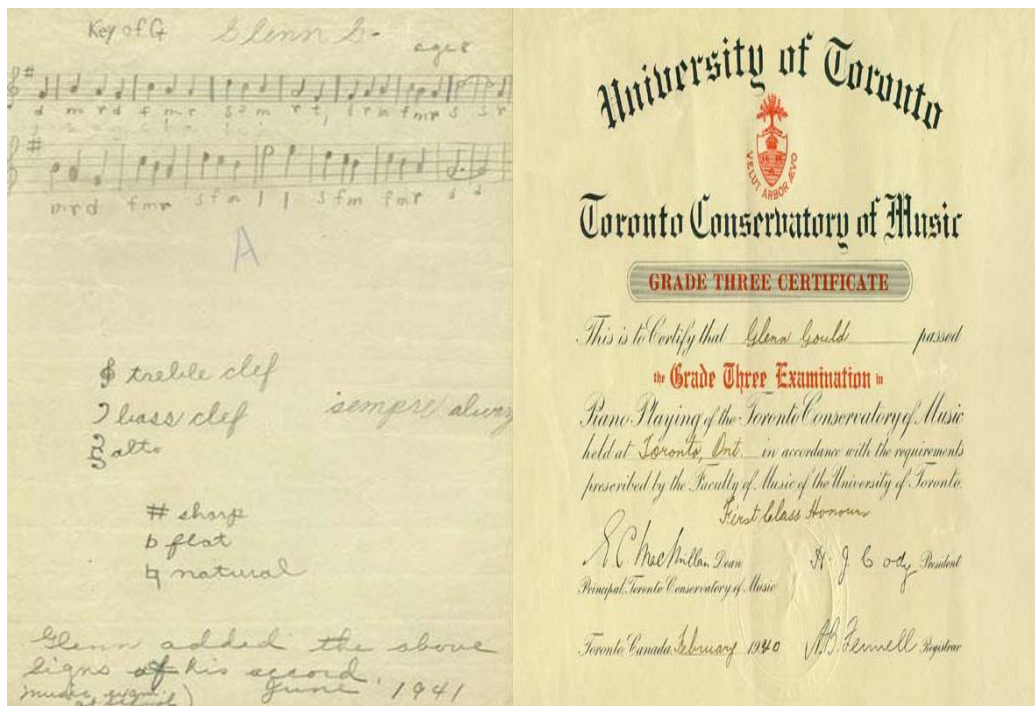 Key of G Glenn G.
age 8
d m r d f m r s f m r t, s r m f m r s s r
m r d f m r s f m l l s f m f m r s d
A
treble clef
bass clef sempre always
alto
# sharp
b flat
♮ natural
Glenn added the above
signs of his accord.
music exam. June 1941
at school)
University of Toronto
VELUT ARBOR ÆVO
Toronto Conservatory of Music
GRADE THREE CERTIFICATE
This is to Certify that Glenn Gould passed
the Grade Three Examination in
Piano Playing of the Toronto Conservatory of Music
held at Toronto, Ont. in accordance with the requirements
prescribed by the Faculty of Music of the University of Toronto.
First Class Honours
E C MacMillan Dean H. J. Cody President
Principal, Toronto Conservatory of Music
Toronto Canada February 1940 A.B. Fennell Registrar